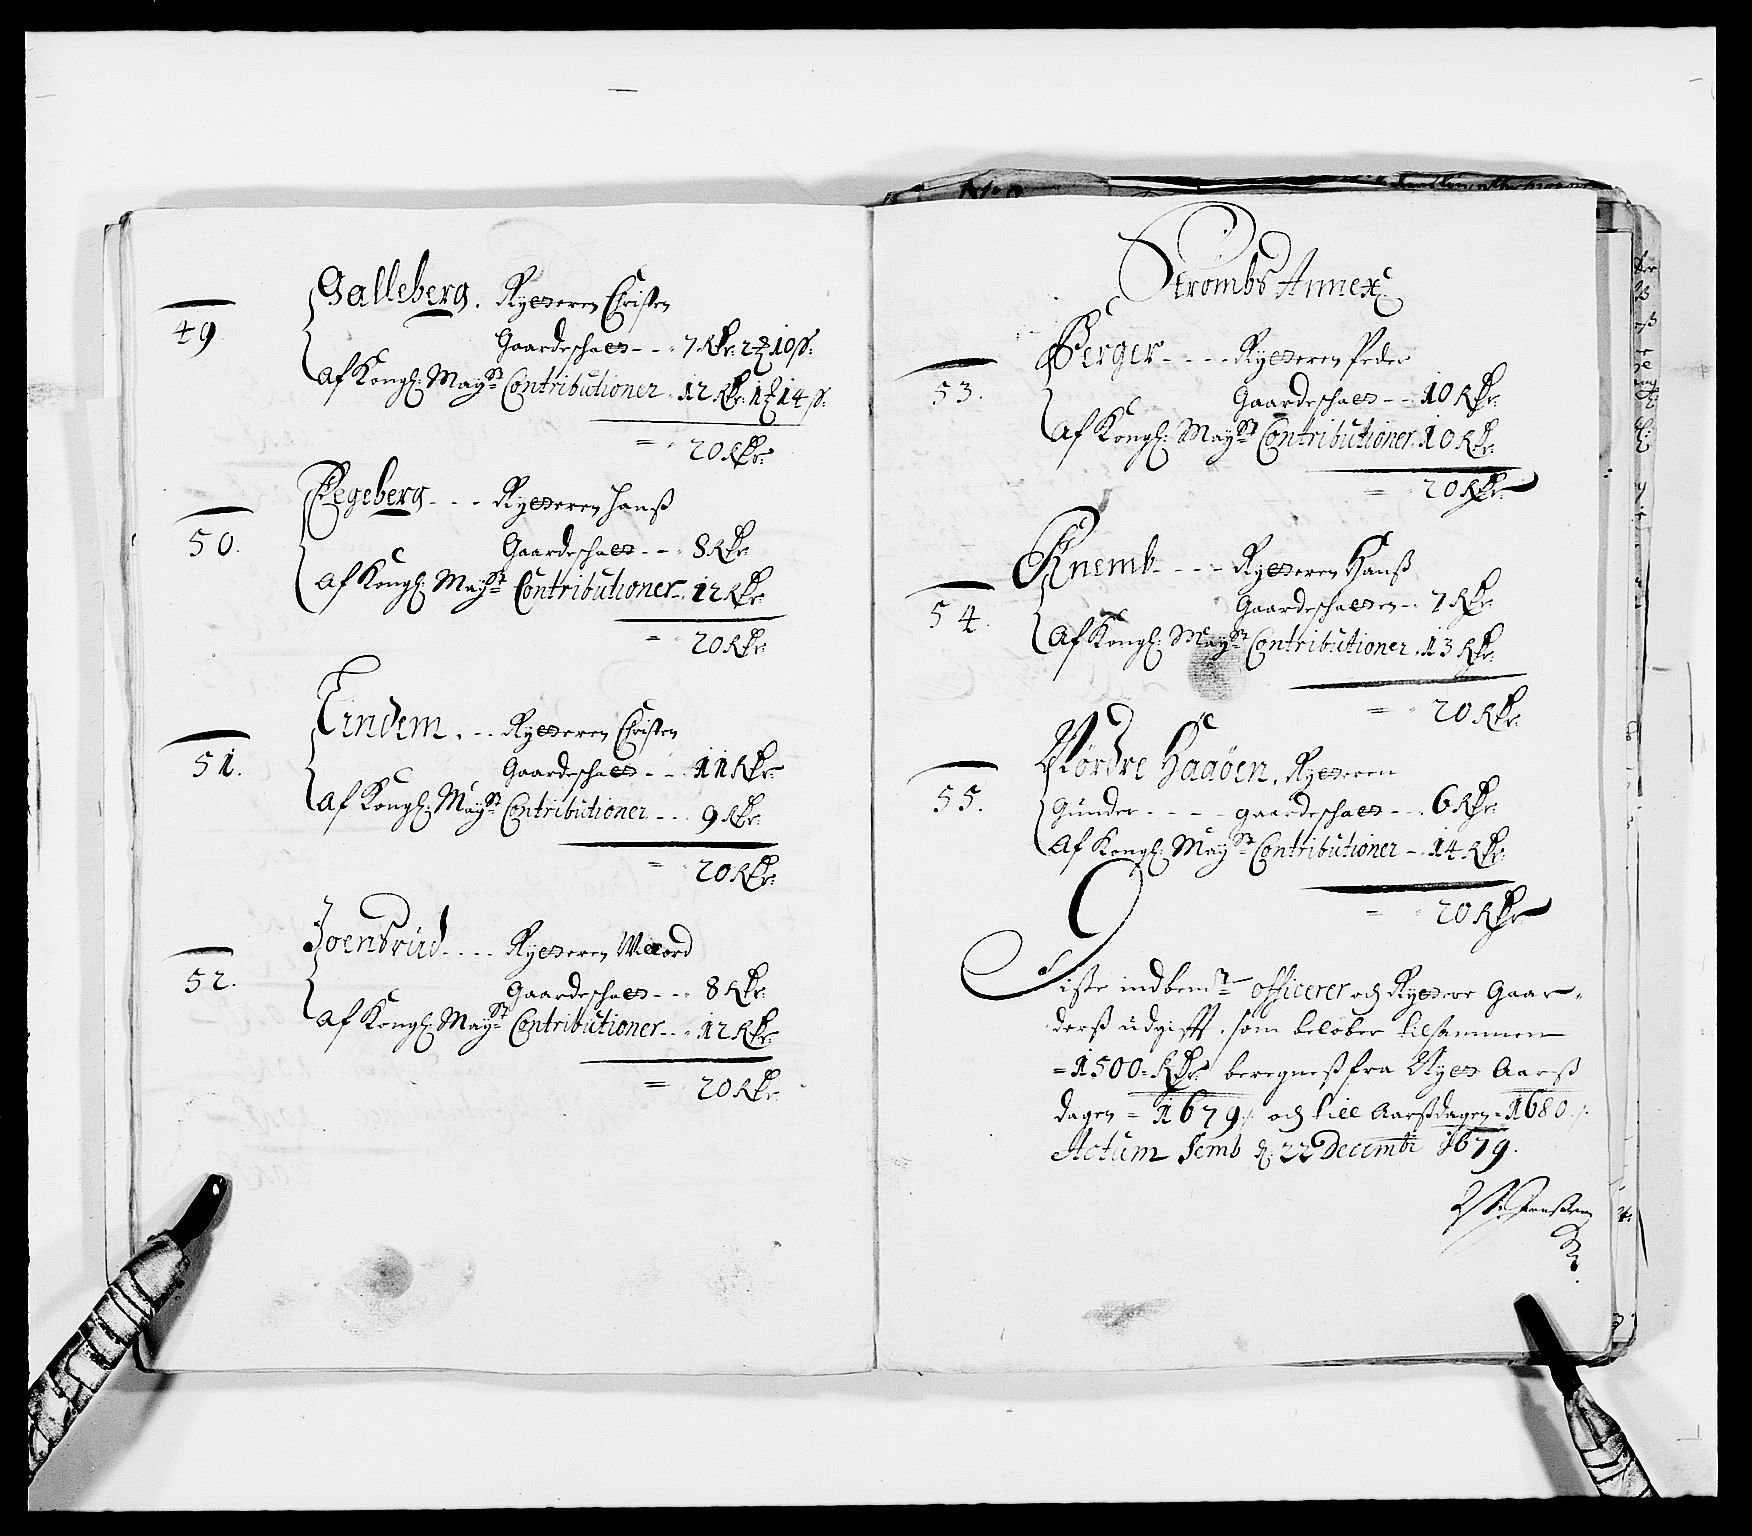 49
Galleberg. Rytteren Christen
Gaardeschatt - - 7 Rdr: 2 10 s:
Af Kongl: May:st Contributioner 12 Rdr: 1 14 s:
= 20 Rdr:
50.
Regeberg - - - Rytteren Hanß
Gaardeschatt - - 8 Rdr:
Af Kongl: May:st Contributioner - 12 Rdr:
= 20 Rdr:
51.
Lindem. - - Rytteren Christen
Gaardeschatt - - 11 Rdr:
Af Kongl: May:st Contributioner - - - 9 Rdr:
= 20 Rdr:
52.
Joensrüd - - - - Rytteren
Gaardeschatt - - 8 Rdr:
Af Kongl: May:st Contributioner - - 12 Rdr:
= 20 Rdr:
Strømbs Annex
53.
Berger - - - - Rytteren Peder
Gaardeschatt - - 10 Rdr:
Af Kongl: May:st Contributioner. 10 Rdr:
= 20 Rdr:
54.
Knemb - - - - Rytteren Hanß
Gaardeschatten - 7 Rdr:
Af Kongl: May:st Contributioner. 13 Rdr:
= 20 Rdr:
55.
Nørdre Haaøen. Rytteren
Günder - - - - gaardeschatt - - 6 Rdr:
Af Kongl: May:st Contributioner - 14 Rdr:
= 20 Rdr:
Disse indbem:te officerer och Ryttere Gaar-
derß üdgifft, som beløber tilsammen
= 1500 = Rdr: beregneß fra Nytt Aarß
dagen = 1679 /: och till Aarßdagen = 1680 /:
Actum Semb d: 22 Decembr 1679.